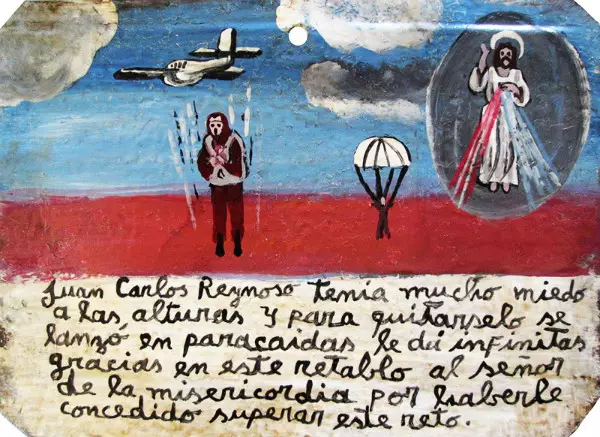 Juan Carlos Reynoso tenía mucho miedo
a las alturas y para quitarselo se
lanzó en paracaidas le da infinitas
gracias en este retablo al señor
de la misericordia por haberle
concedido superar este reto.